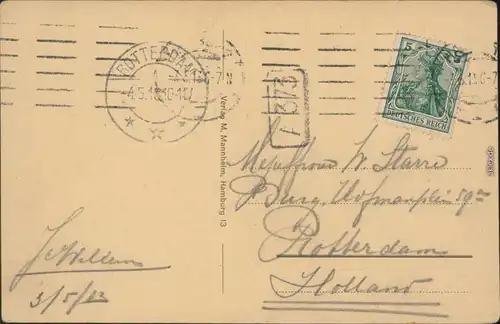 ROTTERDAM
4.5.12.10-11V
F 373
5 5
DEUTSCHES REICH
Verlag M. Mannheim, Hamburg 13
Mejuffrouw W. Starre
Burg. Hofmanplein
Rotterdam
Holland
J. Willems
3/5/12